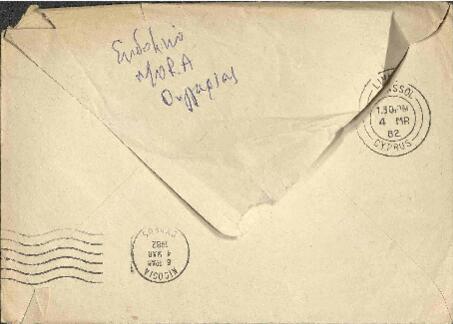 Ενδοκινο
MORA
Ουγγαρίας
LIMASSOL
1.30PM
4 MR
82
CYPRUS
NICOSIA
4 MAR
1982
CYPRUS